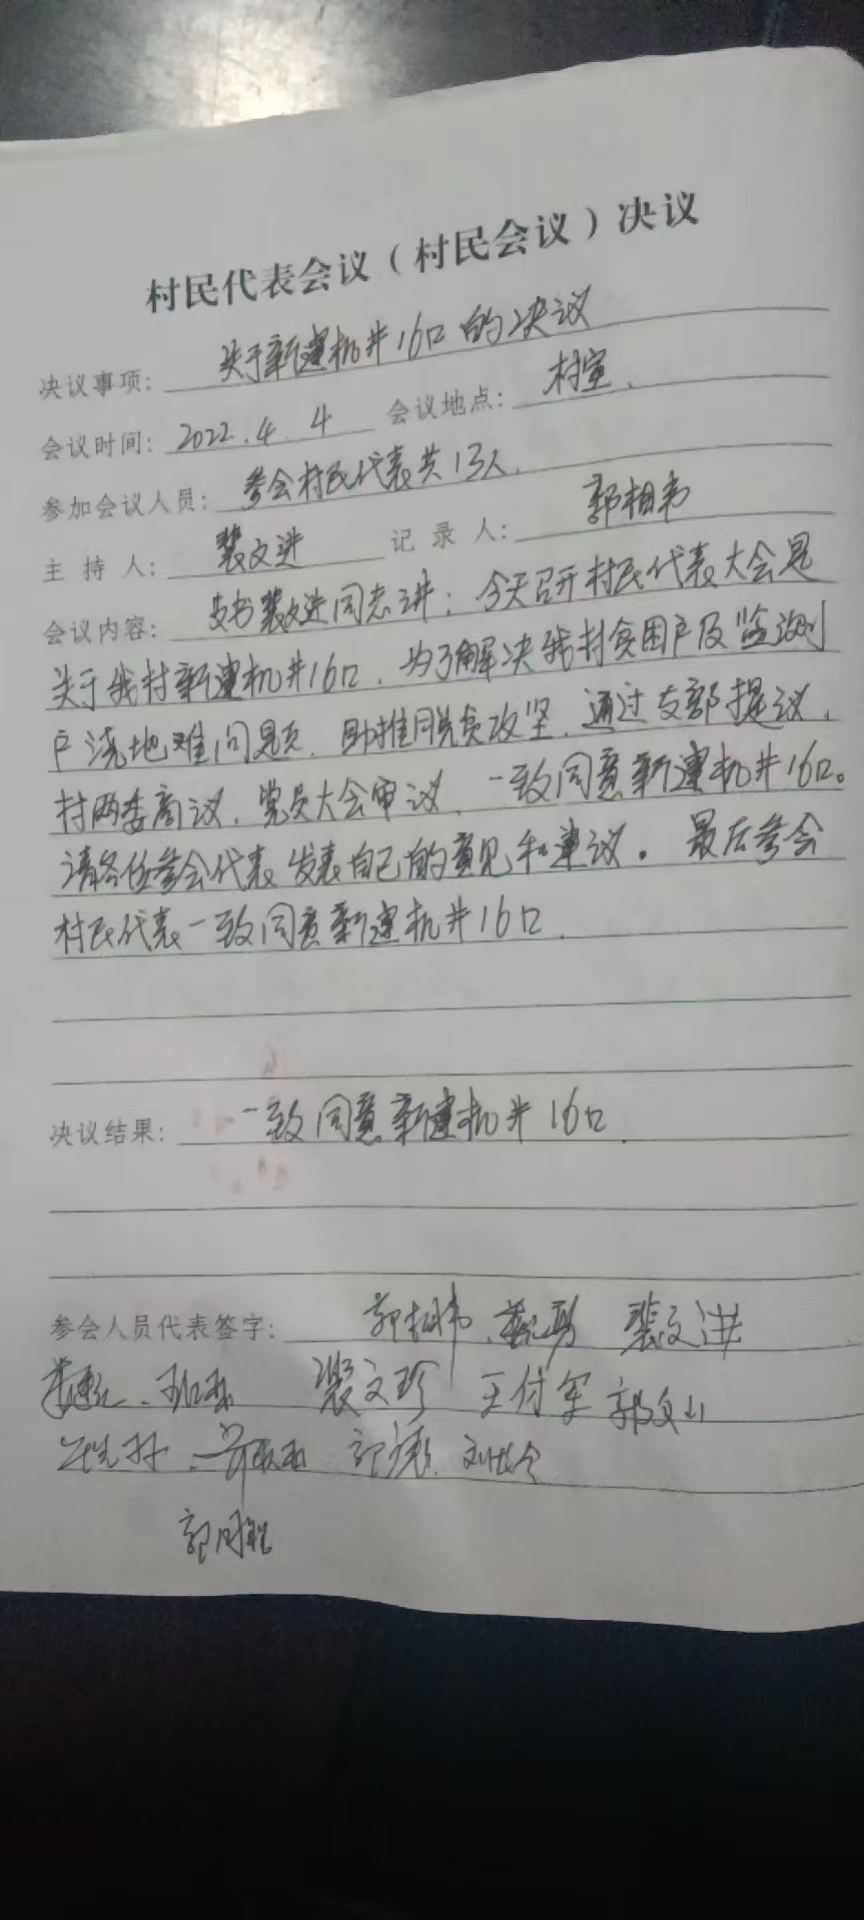 村民代表会议（村民会议）决议
决议事项： 关于新建机井16口的决议
会议时间： 2022.4.4 会议地点： 村室.
参加会议人员： 参会村民代表共13人.
主持人： 裴文进 记录人： 郭相韦
会议内容： 支书裴文进同志讲：今天召开村民代表大会是
关于我村新建机井16口，为了解决我村贫困户及监测
户浇地难问题，助推脱贫攻坚，通过支部提议，
村两委商议，党员大会审议，一致同意新建机井16口。
请各位参会代表发表自己的意见和建议。最后参会
村民代表一致同意新建机井16口.
决议结果： 一致同意新建机井16口.
参会人员代表签字： 裴文进
裴文珍 王付军 郭文山